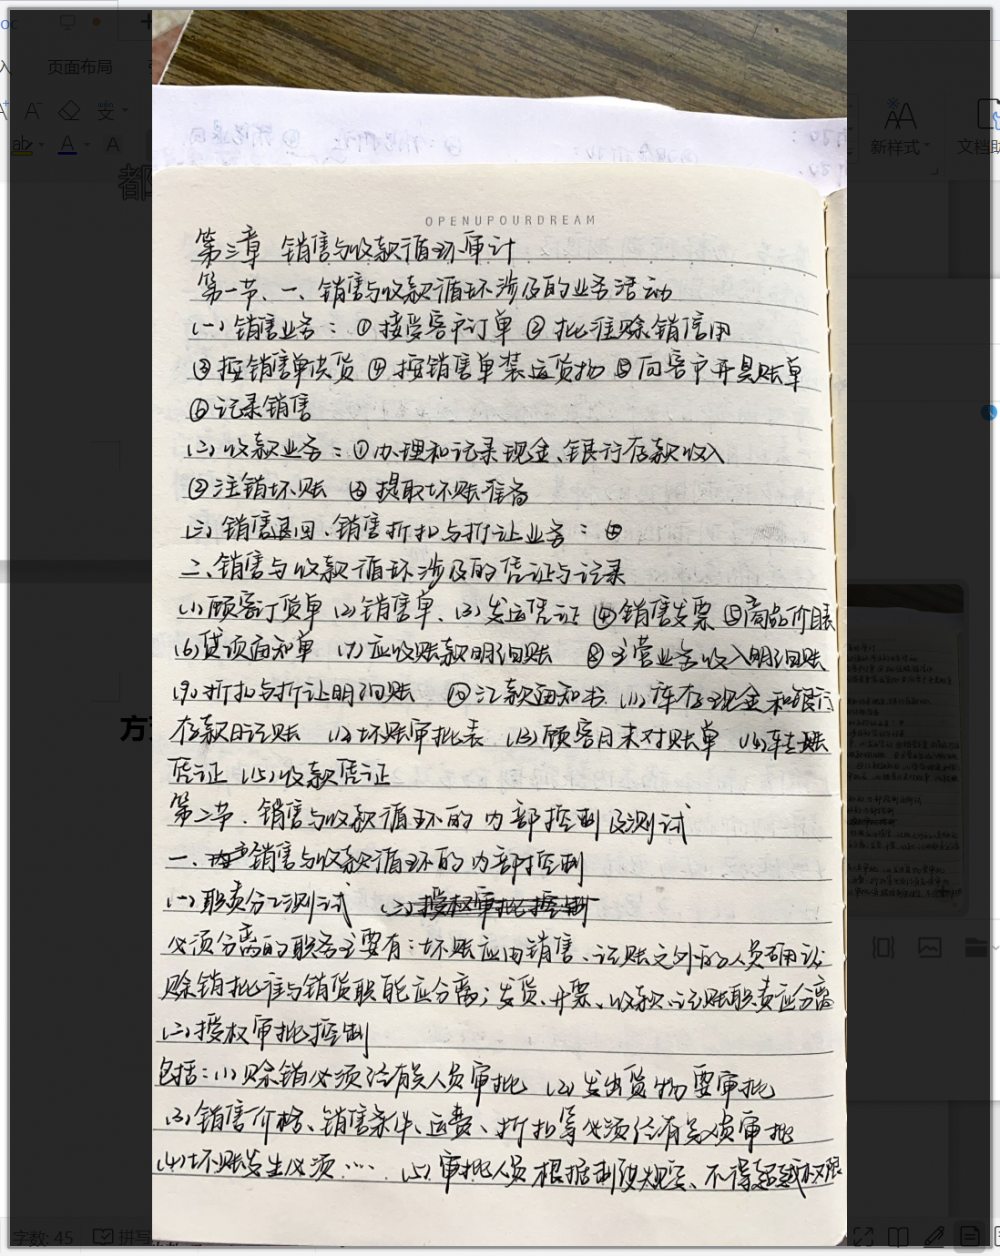 OPENUPOURDREAM
第三章 销售与收款循环审计
第一节、一、销售与收款循环涉及的业务活动
(一)销售业务：①接受客户订单 ②批准赊销信用
③按销售单供货 ④按销售单装运货物 ⑤向客户开具账单
⑥记录销售
(二)收款业务：①办理和记录现金、银行存款收入
②注销坏账 ③提取坏账准备
(三)销售退回、销售折扣与折让业务：④
二、销售与收款循环涉及的凭证与记录
(1)顾客订货单 (2)销售单、(3)发运凭证 ④销售发票 ⑤商品价目表
(6)贷项通知单 (7)应收账款明细账 ⑧主营业务收入明细账
(9)折扣与折让明细账 ⑩汇款通知书 (11)库存现金和银行
存款日记账 (12)坏账审批表 (13)顾客月末对账单 (14)转账
凭证 (15)收款凭证
第二节、销售与收款循环的内部控制及测试
一、销售与收款循环的内部控制
(一)职责分工测试 (二)授权审批控制
必须分离的职务主要有：坏账应由销售、记账之外的人员确认；
赊销批准与销货职能应分离；发货、开票、收款、记账职责应分离
(二)授权审批控制
包括：(1)赊销必须经有关人员审批 (2)发出货物要审批
(3)销售价格、销售条件、运费、折扣等必须经有关人员审批
(4)坏账发生必须…… (5)审批人员根据制度规定、不得超越权限
页面布局
新样式
文档助
字数: 45
拼写